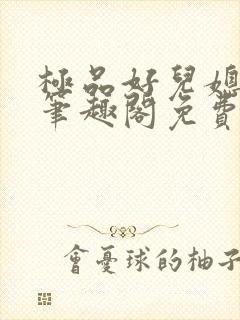 極品好兒媳
筆趣閣免費
會憂球的柚子